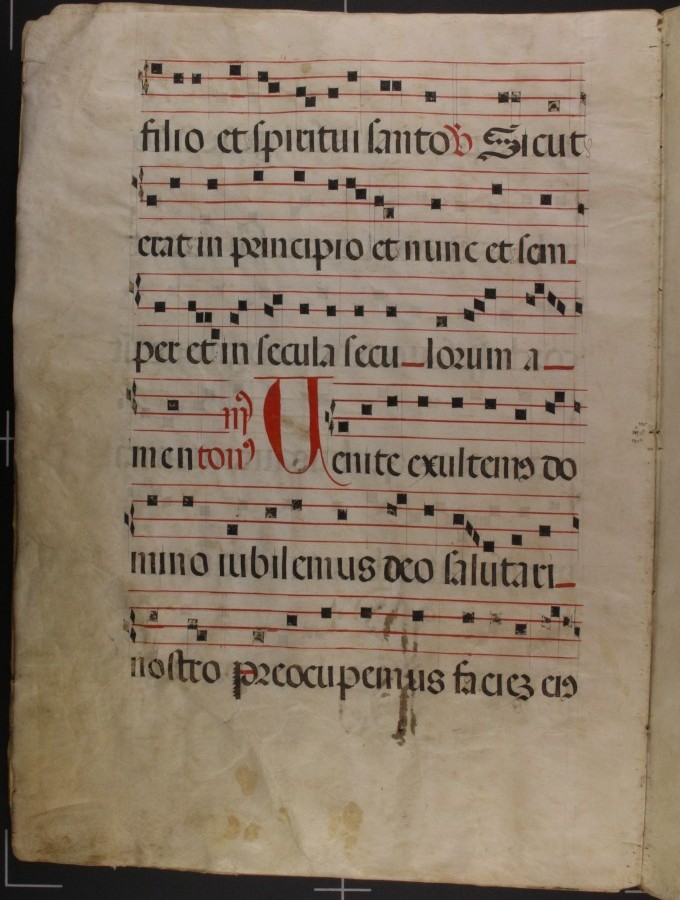 filio et spiritui santo ℣ Sicut
erat in principio et nunc et sem
per et in secula secu lorum a
men ton⁹ Uenite exultem⁹ do
mino iubilemus deo salutari
nostro preocupemus faciez ei⁹